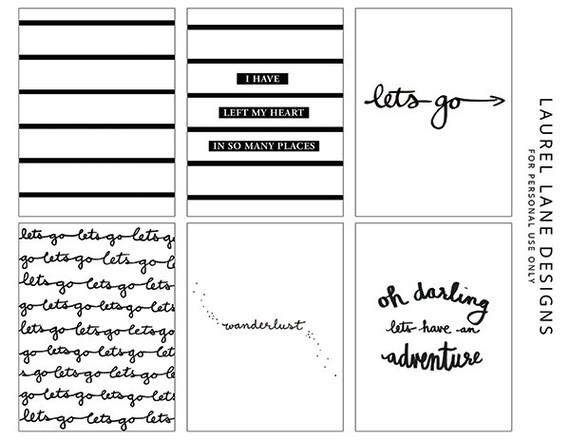 I HAVE
LEFT MY HEART
IN SO MANY PLACES
lets go
lets go lets go lets g
go lets go lets go
lets go lets go lets
go lets go lets go
lets go lets go lets
go lets go lets
s go lets go lets
go lets go lets go
lets go lets go lets
wanderlust
oh darling
lets have an
adventure
LAUREL LANE DESIGNS
FOR PERSONAL USE ONLY